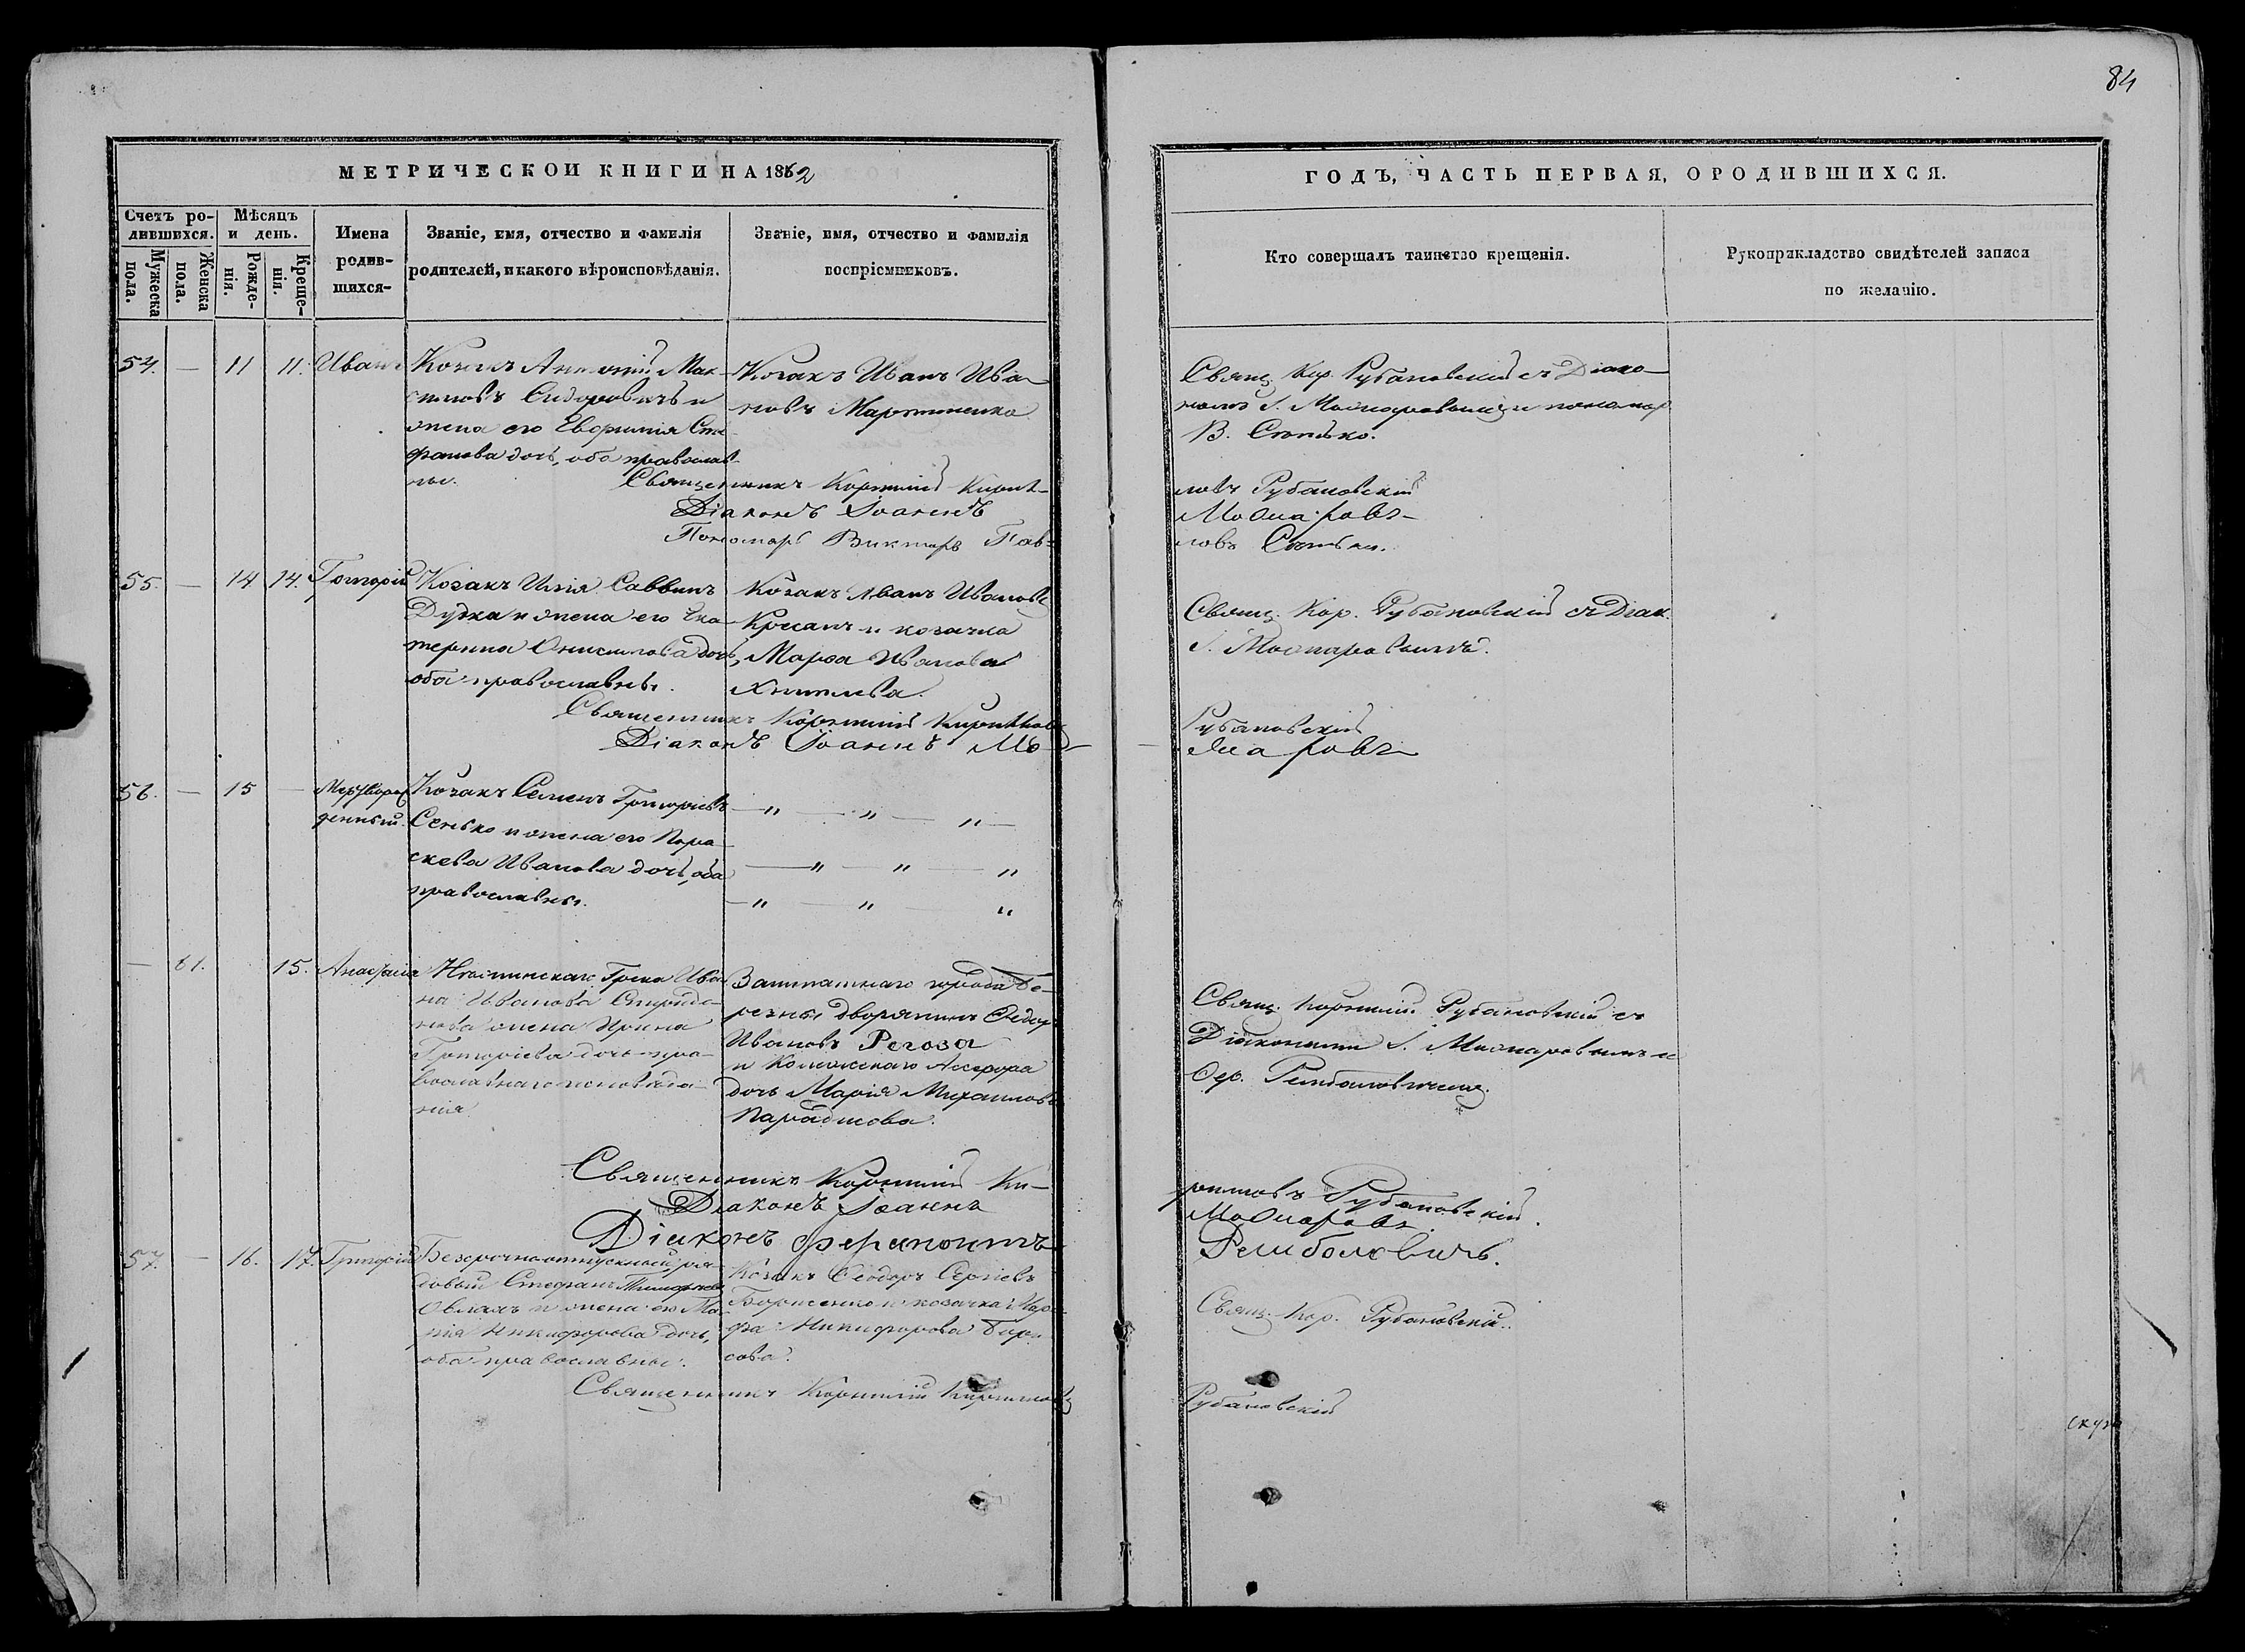 84
МЕТРИЧЕСКОЙ КНИГИ НА 1862
ГОДЪ, ЧАСТЬ ПЕРВАЯ, О РОДИВШИХСЯ.
Счетъ ро-
дившихся.
Мужеска пола.
Женска пола.
Мѣсяцъ
и день.
Рожде-
нія.
Креще-
нія.
Имена
родив-
шихся-
Званіе, имя, отчество и фамилія
родителей, и какого вѣроисповѣданія.
Званіе, имя, отчество и фамилія
воспріемниковъ.
Кто совершалъ таинство крещенія.
Рукоприкладство свидѣтелей записи
по желанію.
54. — 11 11. Иванъ
Козакъ Антоній Мак-
симовъ Сидоровичъ и
жена его Евфимія Сте-
фанова дочь, оба православ-
ны.
Козакъ Иванъ Ива-
новъ Мартыненко
Свящ. Кор. Рубановскій съ Діако-
номъ І. и пономар.
В.
Священникъ Корнилій Кирил-
ловъ Рубановскій
Діаконъ Іоаннъ
Пономарь Викторъ Пав-
ловъ
55. — 14 14. Григорій
Козакъ Илія Саввинъ
Дудка и жена его Ека-
терина Онисимова дочь,
оба православны.
Козакъ Иванъ Ивановъ
и козачка
Марѳа Иванова
Свящ. Кор. Рубановскій съ Діак.
І.
Священникъ Корнилій Кирилловъ
Рубановскій
Діаконъ Іоаннъ
56. — 15 — Мертворож
денный.
Козакъ Семенъ Григоріевъ
Сенько и жена его Пара-
скева Иванова дочь, оба
православны.
— " — " — " —
— " — " — "
— " — " — "
— 61. 15. Анастасія
Нѣжинскаго Грека Ива-
на Иванова Спиридо-
нова жена Ирина
Григоріева дочь пра-
вославнаго исповѣда-
нія.
Заштатнаго города Бе-
резны дворянинъ Ѳедоръ
Ивановъ Регоза
и Колежскаго Ассесора
дочь Марія Михаилова
Свящ. Корнилій Рубановскій съ
Діаконами І. и
Ѳер.
Священникъ Корнилій Ки-
рилловъ Рубановскій.
Діаконъ Іоаннъ
Діаконъ Ферапонтъ
57. — 16. 17. Григорій
Безсрочноотпускный ря-
довый Стефанъ Тимофѣевъ
и жена его Ма-
рія Никифорова дочь,
оба православны.
Козакъ Ѳеодоръ Сергіевъ
Борисенко и козачка Мар-
фа Никифорова Бори-
сова.
Свящ. Кор. Рубановскій.
Священникъ Корнилій Кирилловъ
Рубановскій